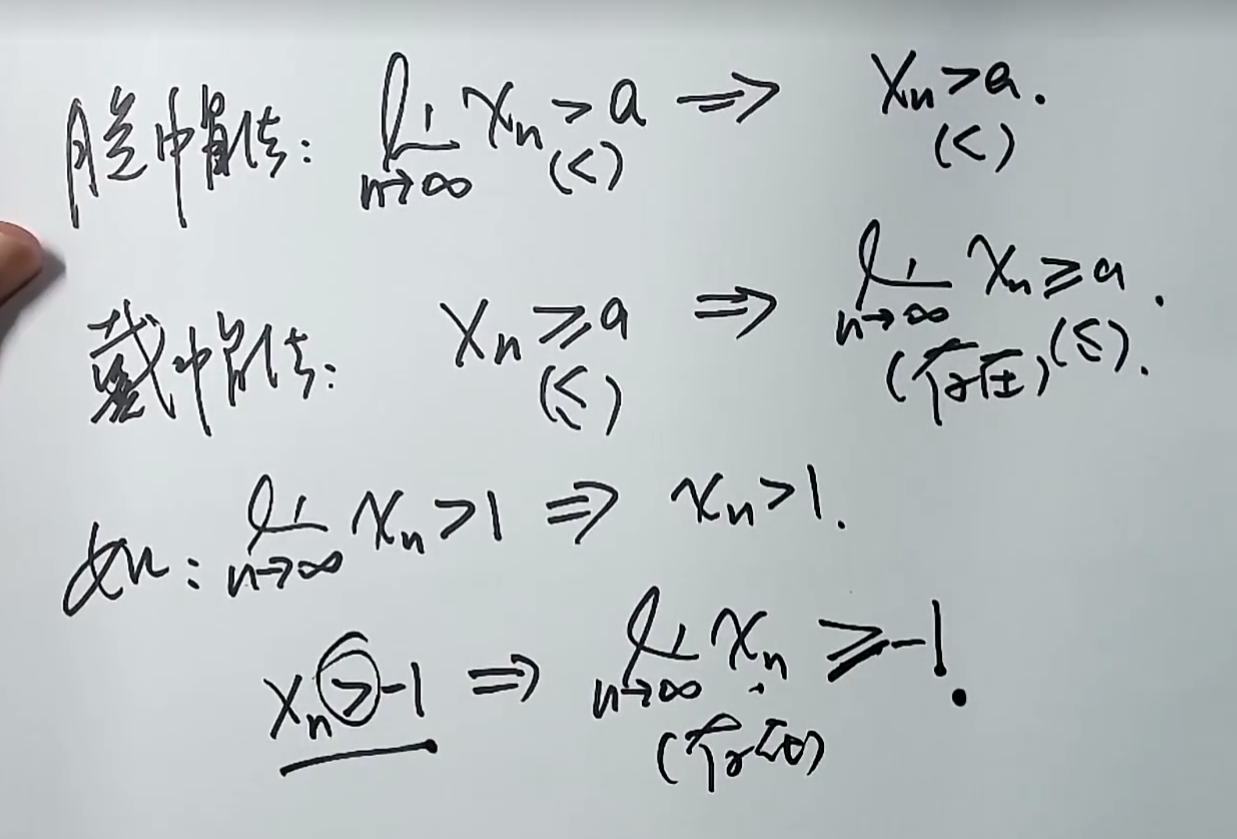 脱帽法: lim n→∞ xn > a (<) ⇒ xn > a. (<)
戴帽法: xn ≥ a (≤) ⇒ lim n→∞ xn ≥ a (存在) (≤).
如: lim n→∞ xn > 1 ⇒ xn > 1.
xn > -1 ⇒ lim n→∞ xn ≥ -1. (存在)